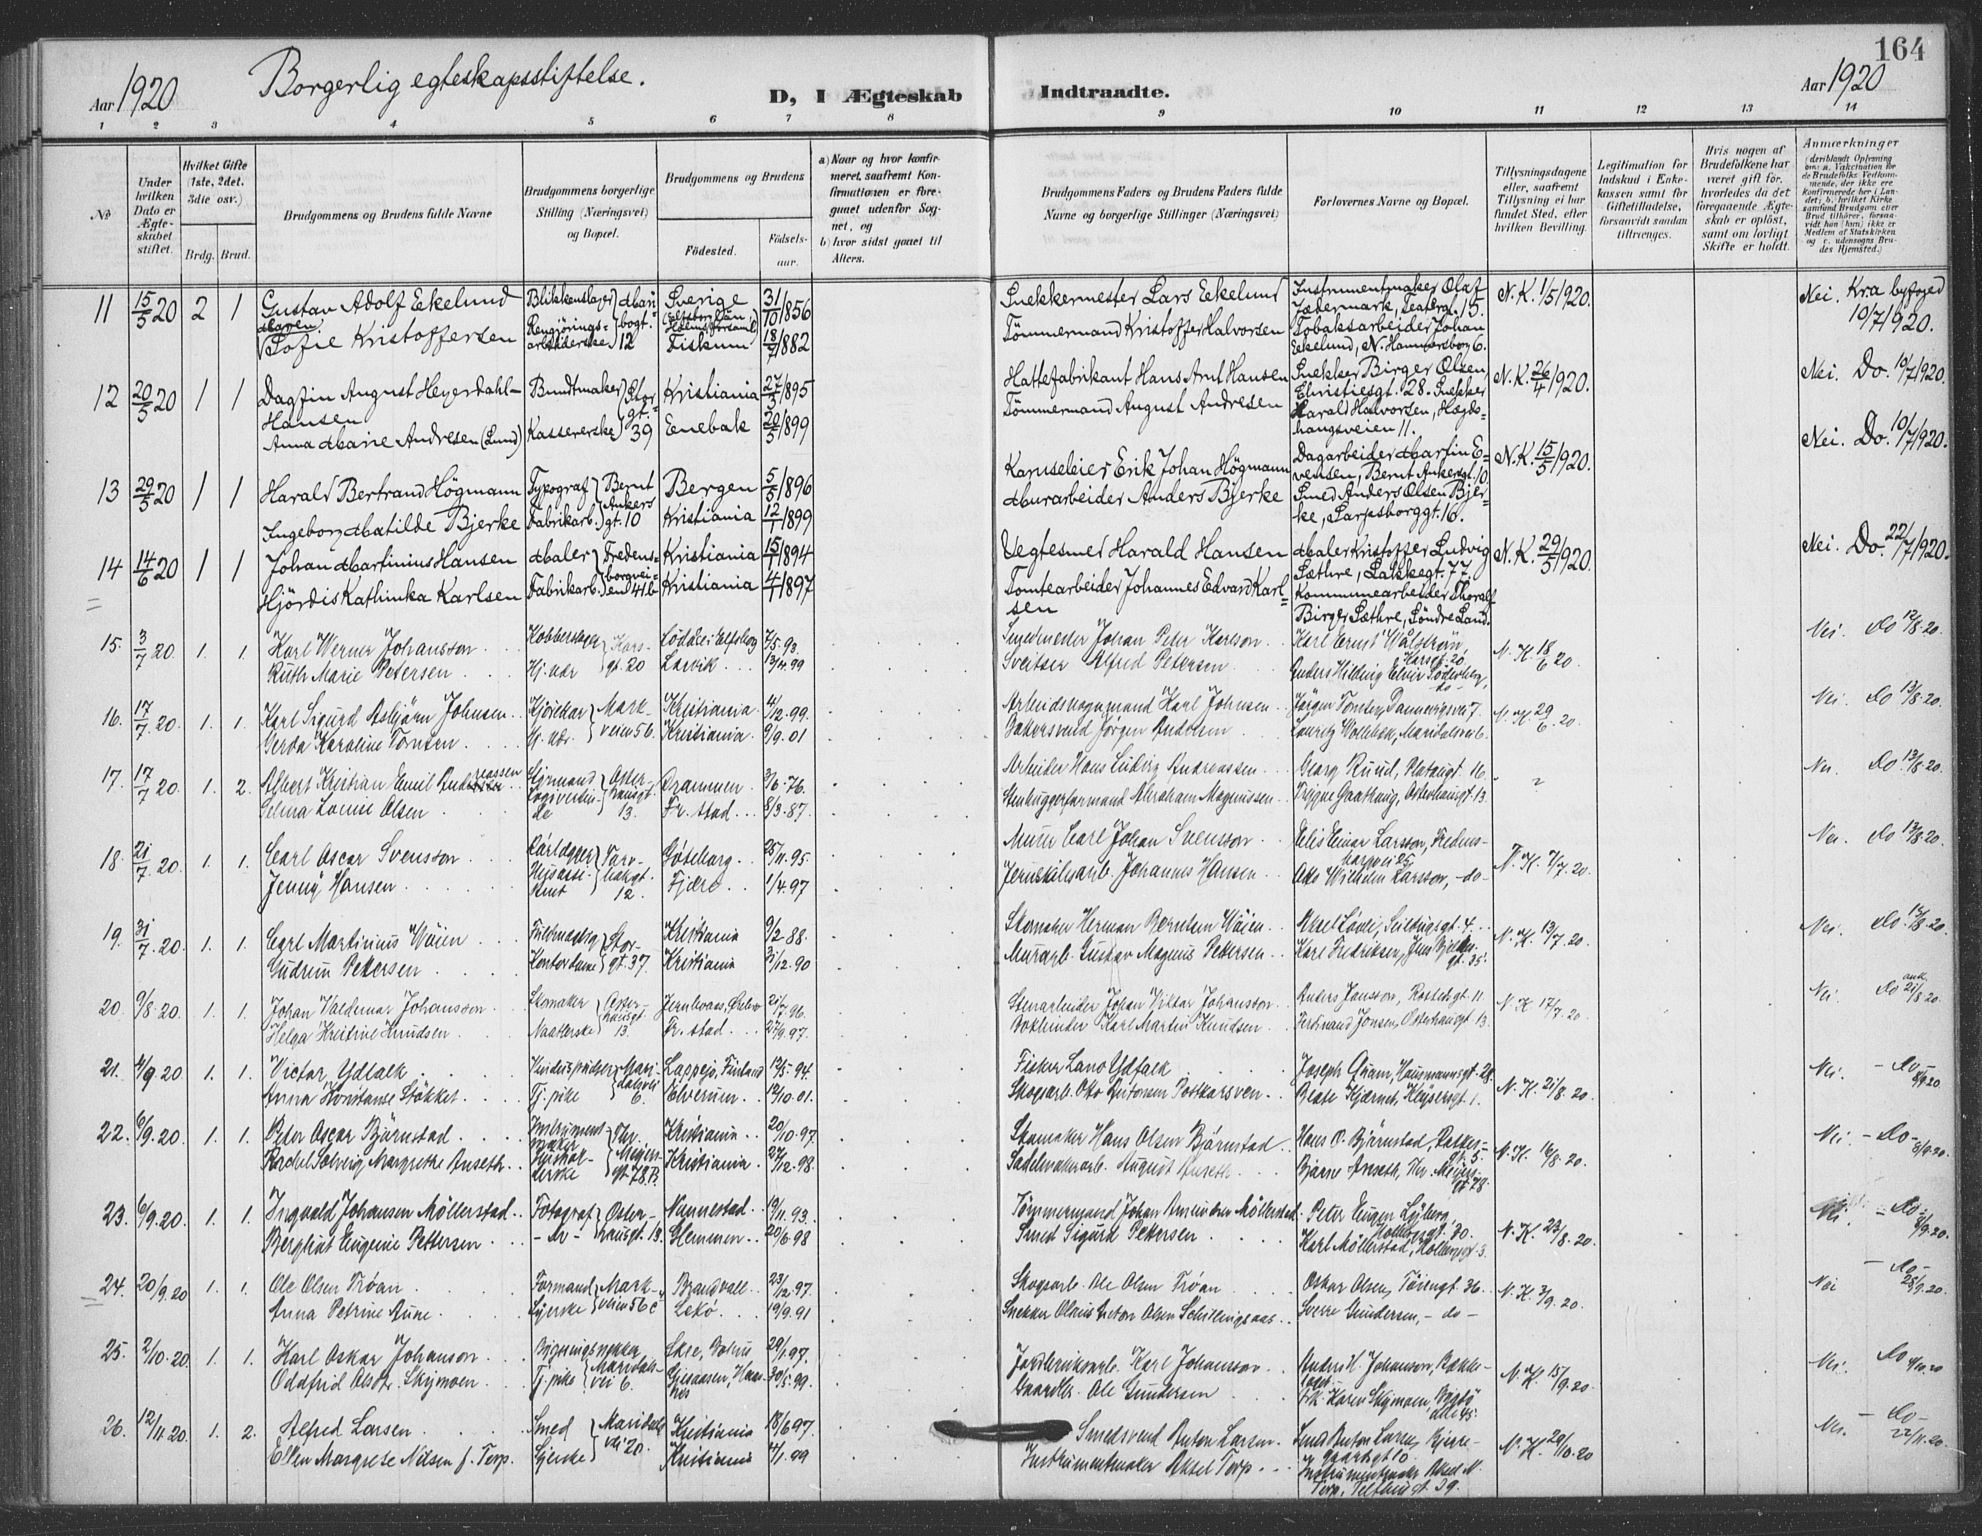 164
Aar 1920 Borgerlig egteskapsstiftelse. D, I Ægteskab Indtraadte. Aar 1920
1 2 3 4 5 6 7 8 9 10 11 12 13 14
No
Under hvilken Dato er Ægteskabet stiftet.
Hvilket Gifte (1ste, 2det, 3die osv.)
Brdg. Brud.
Brudgommens og Brudens fulde Navne
Brudgommens borgerlige Stilling (Næringsvei) og Bopæl.
Brudgommens og Brudens
Fødested. Fødsels-aar.
a) Naar og hvor konfirmeret, saafremt Konfirmationen er foregaaet udenfor Sognet, og
b) hvor sidst gaaet til Alters.
Brudgommens Faders og Brudens Faders fulde Navne og borgerlige Stillinger (Næringsvei)
Forlovernes Navne og Bopæl.
Tillysningsdagene eller, saafremt Tillysning ei har fundet Sted, efter hvilken Bevilling.
Legitimation for Indskud i Enkekassen samt for Giftetilladelse, forsaavidt saadan tiltrænges.
Hvis nogen af Brudefolkene har været gift før, hvorledes da det foregaaende Ægteskab er opløst, samt om lovligt Skifte er holdt.
Anmærkninger
11 15/5 20 2 1 Gustav Adolf Eekelund Blikkenslager Sverige 31/10 1856 Snekkermester Lars Eekelund Instrumentmaker Olaf N.K. 1/5 1920. Nei. Kra byfoged
Maren Sofie Kristoffersen Rengjørings- 12 Fiskum 18/7 1882 Tømmermand Kristoffer Halvorsen Tobaksarbeider Johan 10/7 1920.
Eekelund, N. Hammersborg 6.
12 20/5 20 1 1 Dagfin August Heyerdahl- Bundtmaker Stor- Kristiania 27/5 1895 Hattefabrikant Hans Arnt Hansen Snekker Birger Olsen, N.K. 26/4 1920. Nei. Do. 10/7 1920.
Hansen gt. Tømmermand August Andresen Christiesgt. 28. Snekker
Anna Marie Andresen (Lund) Kassererske 39 Enebak 20/5 1899 Harald Halvorsen, Hægde-
hangsveien 11. Nei. Do. 10/7 1920.
13 29/5 20 1 1 Harald Bertrand Högmann Typograf Bernt Bergen 5/5 1896 Karuseleier Erik Johan Högmann Dagarbeider Martin E- N.K. 15/5 1920.
Ankers vensen, Bernt Ankersgt. 10
Ingeborg Matilde Bjerke Fabrikarb. gt. 10 Kristiania 12/1 1899 Murarbeider Anders Bjerke Smed Anders Olsen Bjer-
ke, Sarpsborggt. 16.
14 14/6 20 1 1 Johan Martinius Hansen Maler Fredens- Kristiania 15/1 1894 Vegtesmed Harald Hansen Maler Kristoffer Ludvig N.K. 29/5 1920. Nei. Do. 22/7 1920.
borgvei- Sæthre, Lakkegt. 77.
Hjördis Kathinka Karlsen Fabrikarb. en 41 b Kristiania 4/1 1897 Tomtearbeider Johannes Edvard Karl- Kommunearbeider Thoralf
sen Birger Sæthre, Søndre Land.
15. 3/7 20. 1. 1. Karl Werner Johansson Kobberslager Kors- 7/5 93. Johan Peter Karlson Karl Ernst Wålström, N.K. 18/6 20 Nei. do 12/8. 20.
Ruth Marie Petersen Hj. vær gt. 20 Larvik 13/11 99 Sveitser Alfred Petersen Anders Hilding Söderberg, -do-
16. 17/7. 20. 1. 1. Karl Sigurd Asbjørn Johnsen Kjörekar Mark- Kristiania 4/12. 99. Karl Johnsen Jørgen Tonsen, Dannevigsvei 7. N.K. 29/6. 20. Nei. Do 13/8. 20.
Gerda Karoline Tonsen Hj. vær. veien 56. Kristiania 9/9. 01 Jørgen Andersen Lauritz Wollebæk, Maridalsvei 6.
17. 17/7 20. 1. 2. Albert Kristian Emil Andreassen Oster- Drammen 3/6. 76. Arbeider Hans Ludvig Andreassen Georg Ruud, Platougt. 16. " Nei. Do. 13/8. 20.
Selma Louise Olsen hausgt. 13. Fr. stad 8/3. 87. Stenhuggerformand Abraham Magnussen Trygve Gaathaug, Osterhausgt. 13.
18. 21/7. 20. 1. 1. Carl Oscar Svensson Torv- Göteborg 25/11. 95. Murer Carl Johan Svensson Elis Einar Larsson, Fredens- N.K. 7/7. 20. Nei. do 13/8. 20.
Jenny Hansen 12. Fjære 1/4. 97 Johannes Hansen Wilhelm Larsson, -do-
19. 31/7. 20. 1. 1. Carl Martinius Wåien Stor- Kristiania 9/2 88. Skomaker Herman Berntsen Wåien Aksel Lövli, Seilduksgt. 4. N.K. 13/7. 20. Nei. do 13/8. 20.
Gudrun Petersen Kontordame gt. 37. Kristiania 31/12. 90 Murarb. Gustav Magnus Pettersen Karl Fredriksen, gt. 35.
20. 9/8. 20. 1. 1. Johan Valdemar Johansson Skomaker Oster- 21/7. 96. Stenarbeider Johan Viktor Johansson Anders Jansson, Rostedsgt. 11. N.K. 17/7. 20. Nei. do 21/8. 20.
Helga Kristine Knudsen Naatlerske hausgt. 13. Fr. stad 27/9. 97. Bokbinder Karl Martin Knudsen Ferdinand Jonsen, Osterhausgt. 13.
21. 4/9. 20 1. 1. Victor Ydfalk Mari- Lappejo, Finland 13/5. 94. Fisker Lano Ydfalk Joseph Qvam, Hausmannsgt. 28. N.K. 21/8. 20. Nei. - Do - 8/9 20.
Anna Konstanse Stökket Tj. pike dalsvei 6. Elverum 19/10. 01. Skogsarb. Otto Antonsen Beate Kjærnet, Keysersgt. 1.
22. 6/9. 20. 1. 1. Peter Oscar Björnstad Instrument maker Thv. Kristiania 20/10. 97. Skomaker Hans Olsen Björnstad Hans O. Björnstad, N.K. 16/8. 20. Nei. - do - 8/9. 20.
Rachel Solveig Margrethe Anseth Meyers gt. 78 B. Kristiania 27/12. 98. Sadelmakerarb. August Anseth Bjarne Anseth, Thv. Meyers- gt. 78.
23. 6/9. 20. 1. 1. Ingvald Johansen Möllerstad Fotograf Oster- Nannestad 19/11. 93. Tömmermand Johan Amundsen Möllerstad Peter Eugen Lyberg, N.K. 23/8. 20. Nei. - do - 8/9. 20.
Bergliot Eugenie Pettersen - do - hausgt. 13. Glemmen 20/6. 98 Smed Sigurd Petersen Karl Möllerstad,
24. 20/9. 20 1. 1. Ole Olsen Tröan Formand Mark- Brandvall 23/12. 97. Skogsarb. Ole Olsen Tröan Oskar Olsen, Töiengt. 36. N.K. 3/9. 20. Nei - do - 28/9. 20.
Anna Petrine Aune Syerske veien 56 c Lekö 19/9. 91 Snekker Olaus Anton Olsen Schillingsaas Sverre Gundersen, - do -
25. 2/10. 20. 1. 1. Karl Oskar Johanson Bygningssnekker Maridals- 29/1. 97. Karl Johansson Anders H. Johansson, N.K. 15/9. 20. Nei. do 4/10. 20
Oddfrid Skjmoen Tj. pike vei 6. 30/5. 99. Ole Gundersen Frk. Karen Skjmoen,
26. 12/11. 20. 1. 2. Alfred Larsen Smed Maridals- Kristiania 18/6 97. Smedsvend Anton Larsen Smed Anton Larsen, Bjerre- N.K. 20/10. 20 Nei. - do - 22/11. 20.
Ellen Margrete Nilsen f. Torp. Syerske vei 20. Kristiania 4/1. 99 Instrumentmaker Aksel Torp gaardsgt. 10
Instrumentmaker Aksel N.
Torp, Telthusgt. 39.